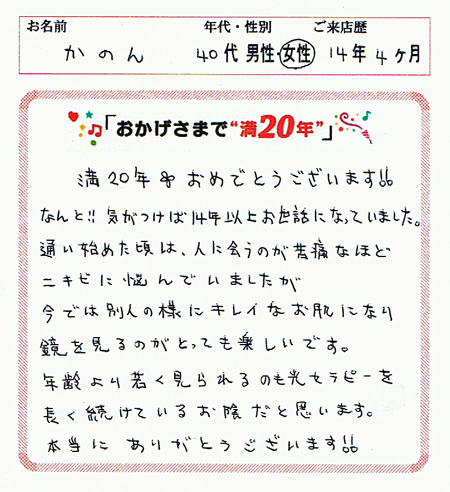 お名前 年代・性別 ご来店歴
かのん 40代 男性・女性 14年4ヶ月
「おかげさまで“満20年”」
満20年 おめでとうございます!!
なんと!! 気がつけば14年以上お世話になっていました。
通い始めた頃は、人に会うのが苦痛なほど
ニキビに悩んでいましたが
今では別人の様にキレイなお肌になり
鏡を見るのがとっても楽しいです。
年齢より若く見られるのも光セラピーを
長く続けているお陰だと思います。
本当にありがとうございます!!